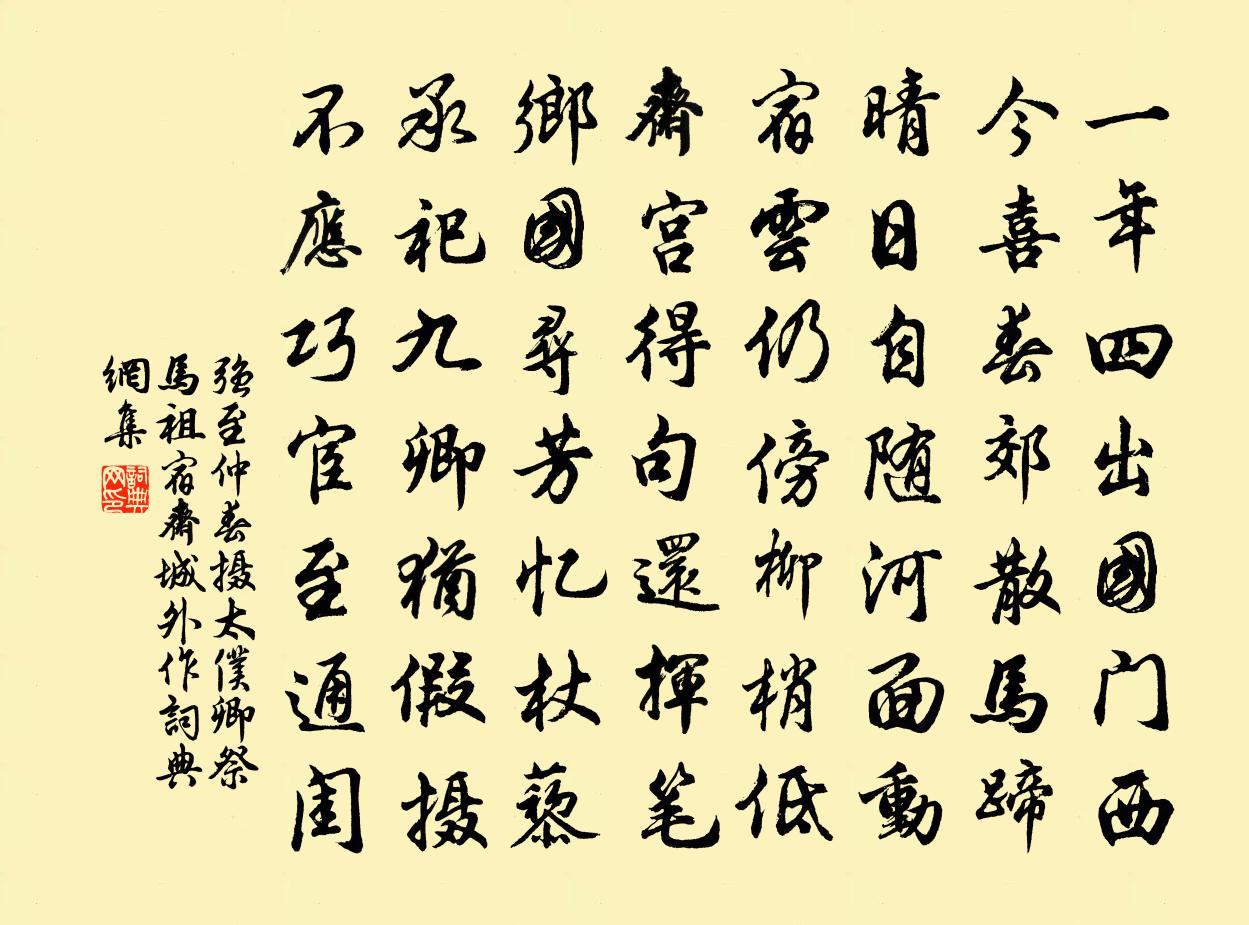 一年四出國门西
今喜春郊散馬蹄
晴日自随河面動
宿雲仍傍柳梢低
齋宫得句還揮笔
鄉國尋芳忆杖藜
承祀九卿猶假摄
不應巧宦至通闺
强至仲春摄太僕卿祭
馬祖宿齋城外作詞典
網集
詞典
网印